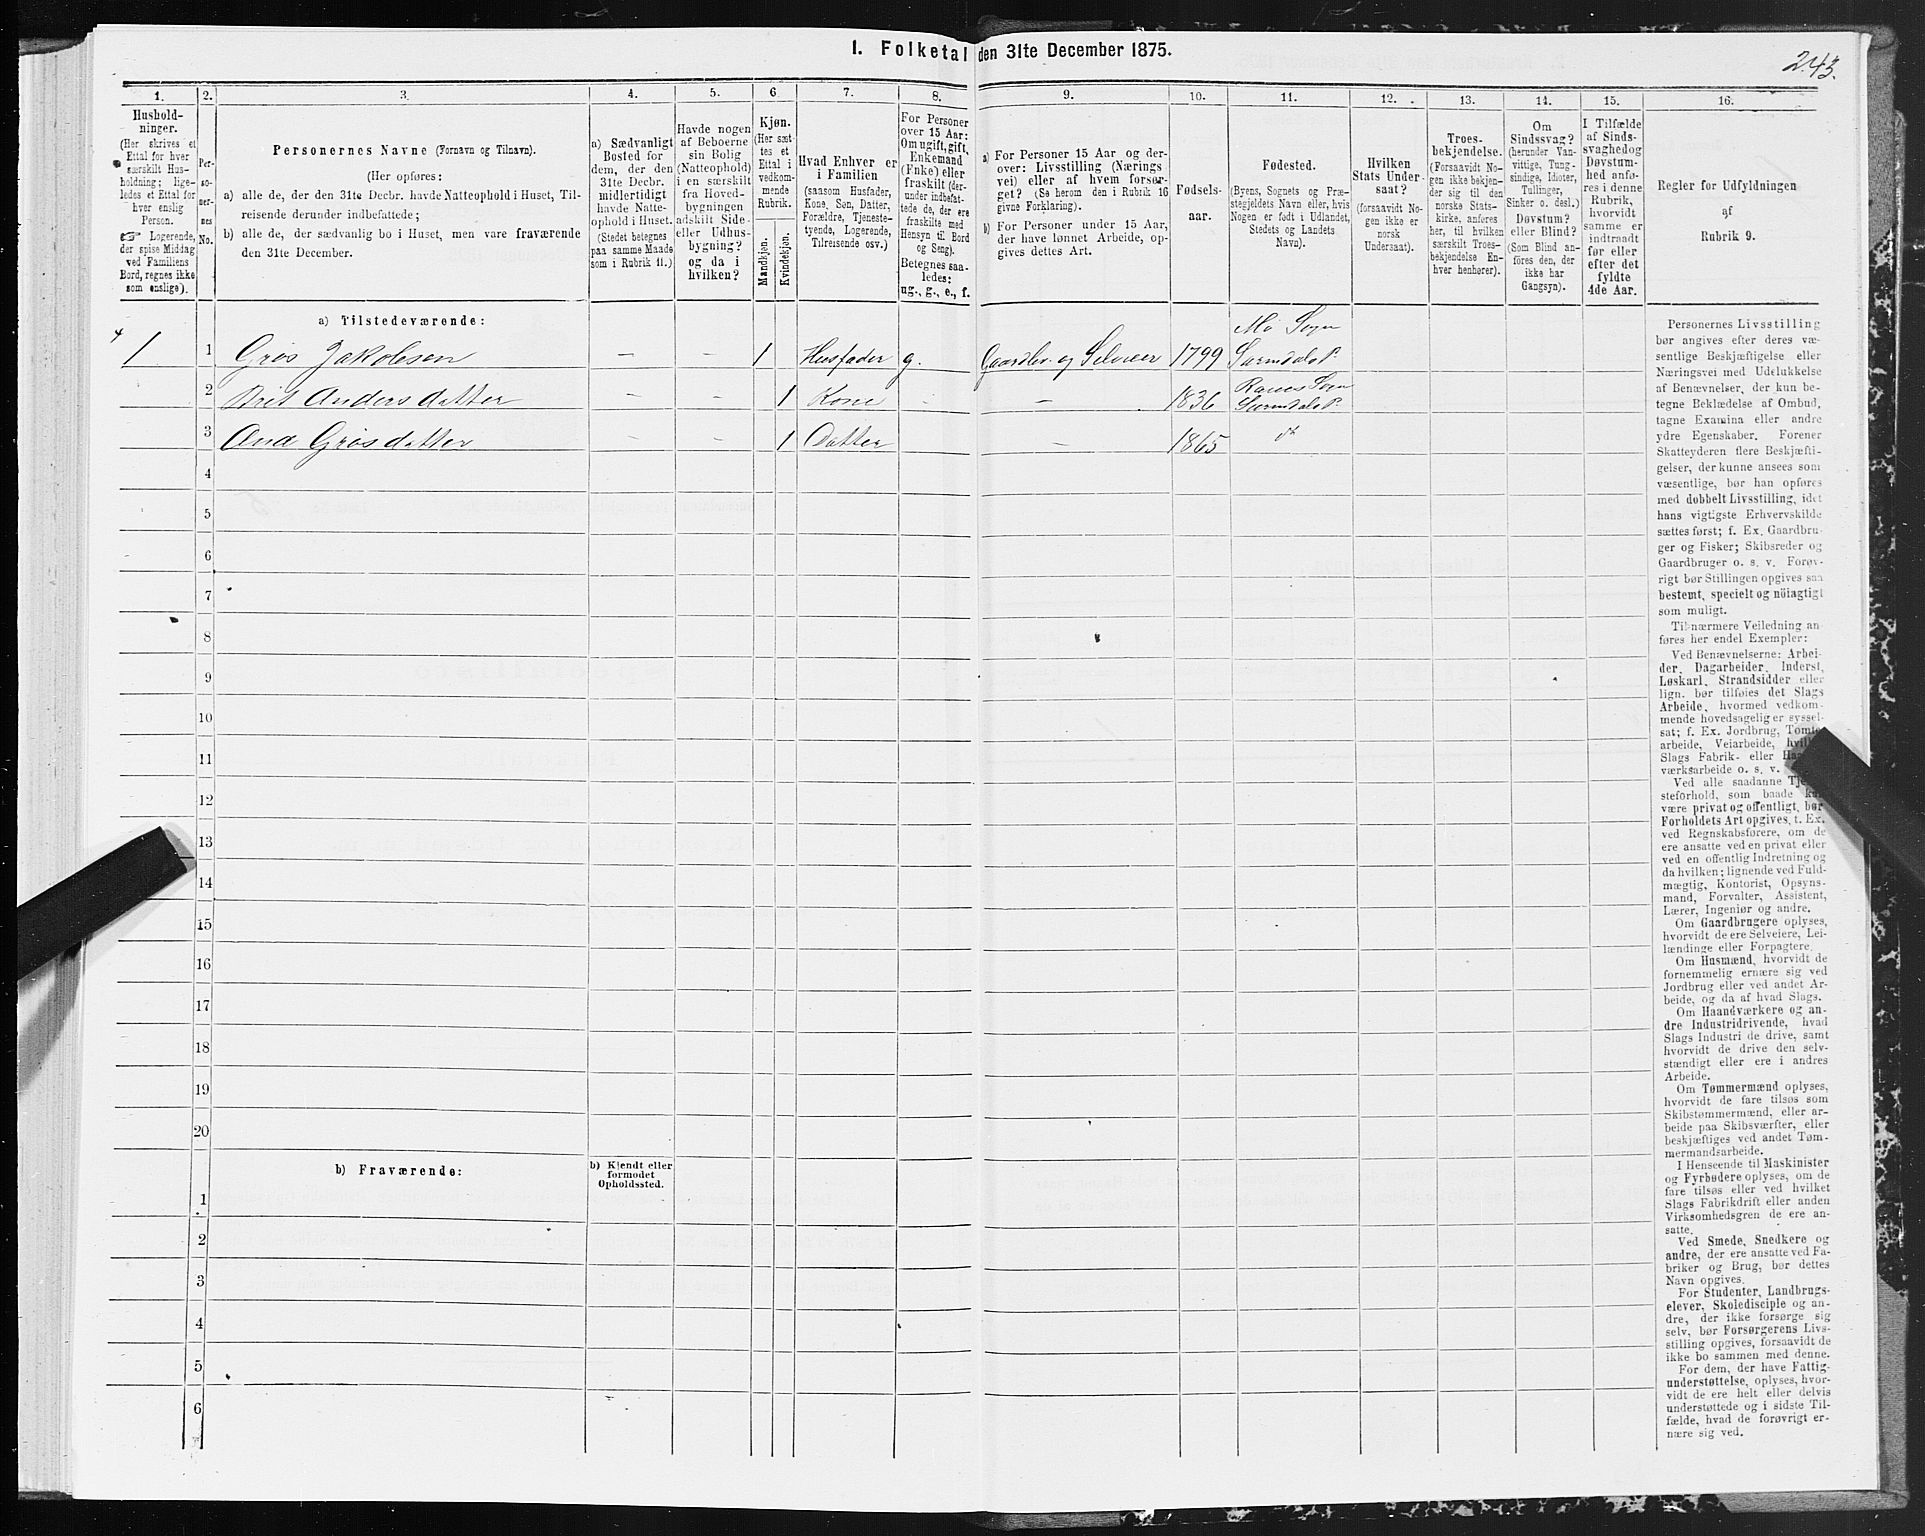 1. Folketal den 31te December 1875.
243.
1.
2.
3.
4.
5.
6.
7.
8.
9.
10.
11.
12.
13.
14.
15.
16.
Hushold-
ninger.
(Her skrives et
Ettal for hver
særskilt Hus-
holdning; lige-
ledes et Ettal for
hver enslig
Person.
☞ Logerende,
der spise Middag
ved Familiens
Bord, regnes ikke
som enslige).
Per-
so-
ner-
nes
No.
Personernes Navne (Fornavn og Tilnavn).
(Her opføres:
a) alle de, der den 31te Decbr. havde Natteophold i Huset, Til-
reisende derunder indbefattede;
b) alle de, der sædvanlig bo i Huset, men vare fraværende
den 31te December.
a) Sædvanligt
Bosted for
dem, der den
31te Decbr.
midlertidigt
havde Natte-
ophold i Huset.
(Stedet betegnes
paa samme Maade
som i Rubrik 11.)
Havde nogen
af Beboerne
sin Bolig
(Natteophold)
i en særskilt
fra Hoved-
bygningen
adskilt Side-
eller Udhus-
bygning?
og da i
hvilken?
Kjøn.
(Her sæt-
tes et
Ettal i
vedkom-
mende
Rubrik.
Mandkjøn.
Kvindekjøn.
Hvad Enhver er
i Familien
(saasom Husfader,
Kone, Søn, Datter,
Forældre, Tjeneste-
tyende, Logerende,
Tilreisende osv.)
For Personer
over 15 Aar:
Om ugift, gift,
Enkemand
(Enke) eller
fraskilt (der-
under indbefat-
tede de, der ere
fraskilte med
Hensyn til Bord
og Seng).
Betegnes saa-
ledes:
ug., g., e., f.
a) For Personer 15 Aar og der-
over: Livsstilling (Nærings
vei) eller af hvem forsør-
get? (Se herom den i Rubrik 16
givne Forklaring).
b) For Personer under 15 Aar,
der have lønnet Arbeide, op-
gives dettes Art.
Fødsels-
aar.
Fødested.
(Byens, Sognets og Præ-
stegjeldets Navn eller, hvis
Nogen er født i Udlandet,
Stedets og Landets
Navn).
Hvilken
Stats Under-
saat?
(forsaavidt No-
gen ikke er
norsk
Undersaat).
Troes-
bekjendelse.
(Forsaavidt No-
gen ikke bekjen-
der sig til den
norske Stats-
kirke, anføres
her, til hvilken
særskilt Troes-
bekjendelse En-
hver henhører).
Om
Sindssvag?
(herunder Van-
vittige, Tung-
sindige, Idioter,
Tullinger,
Sinker o. desl.)
Døvstum?
eller Blind?
(Som Blind an-
føres den, der
ikke har
Gangsyn).
I Tilfælde
af Sinds-
svaghed og
Døvstum-
hed anfø-
res i denne
Rubrik,
hvorvidt
samme er
indtraadt
før eller
efter det
fyldte
4de Aar.
Regler for Udfyldningen
af
Rubrik 9.
a) Tilstedeværende:
4
1 1 Grøs Jakobsen — — 1 Husfader g. Gaardbr. og Selveier 1799 Mo Sogn
Surendals P.
2 Brit Anders datter 1 Kone — 1836 Ranes Sogn
Surendals P.
3 Ana Grøsdatter — — 1 Datter — 1865 dt
4
5
6
7
8
9
10
11
12
13
14
15
16
17
18
19
20
b) Fraværende:
b) Kjendt eller
formodet
Opholdssted.
1
2
3
4
5
6
Personernes Livsstilling
bør angives efter deres væ-
sentlige Beskjæftigelse eller
Næringsvei med Udelukkelse
af Benævnelser, der kun be-
tegne Beklædelse af Ombud,
tagne Examina eller andre
ydre Egenskaber. Forener
Skatteyderen flere Beskjæfti-
gelser, der kunne ansees som
væsentlige, bør han opføres
med dobbelt Livsstilling, idet
hans vigtigste Erhvervskilde
sættes først; f. Ex. Gaardbru-
ger og Fisker; Skibsreder og
Gaardbruger o. s. v. Forøv-
rigt bør Stillingen opgives saa
bestemt, specielt og nöiagtigt
som muligt.
Til nærmere Veiledning an
føres her endel Exempler:
Ved Benævnelserne: Arbei-
der, Dagarbeider, Inderst,
Løskarl, Strandsidder eller
lign. bør tilføies det Slags
Arbeide, hvormed vedkom-
mende hovedsagelig er syssel-
sat; f. Ex. Jordbrug, Tømte-
arbeide, Veiarbeide,
Slags Fabrik- eller
værksarbeide o. s. v.
Ved alle saadanne
steforhold, som baade
være privat og offentligt, bør
Forholdets Art opgives, t. Ex.
ved Regnskabsførere, om de
ere ansatte ved en privat eller
ved en offentlig Indretning og
da hvilken; lignende ved Fuld-
mægtig, Kontorist, Opsyns-
mand, Forvalter, Assistent,
Lærer, Ingeniør og andre.
Om Gaardbrugere oplyses,
hvorvidt de ere Selveiere, Lei-
lændinge eller Forpagtere.
Om Husmænd, hvorvidt de
fornemmelig ernære sig ved
Jordbrug eller ved andet Ar-
beide, og da af hvad Slags.
Om Haandværkere og an-
dre Industridrivende, hvad
Slags Industri de drive, samt
hvorvidt de drive den selv-
stændigt eller ere i andres
Arbeide.
Om Tømmermænd oplyses,
hvorvidt de fare tilsøs som
Skibstømmermænd, eller ar-
beide paa Skibsværfter, eller
beskjæftiges ved andet Tøm-
mermandsarbeide.
I Henseende til Maskinister
og Fyrbødere oplyses, om de
fare tilsøs eller ved hvilket
Slags Fabrikdrift eller anden
Virksomhedsgren de ere an-
satte.
Ved Smede, Snedkere og
andre, der ere ansatte ved Fa-
briker og Brug, bør dettes
Navn opgives.
For Studenter, Landbrugs-
elever, Skoledisciple og an-
dre, der ikke forsørge sig
selv, bør Forsørgerens Livs-
stilling opgives, forsaavidt de
ikke bo sammen med denne.
For dem, der have Fattig-
understøttelse, oplyses, hvor-
vidt de ere helt eller delvis
understøttede og i sidste Til-
fælde, hvad de forøvrigt er-
nære sig ved.